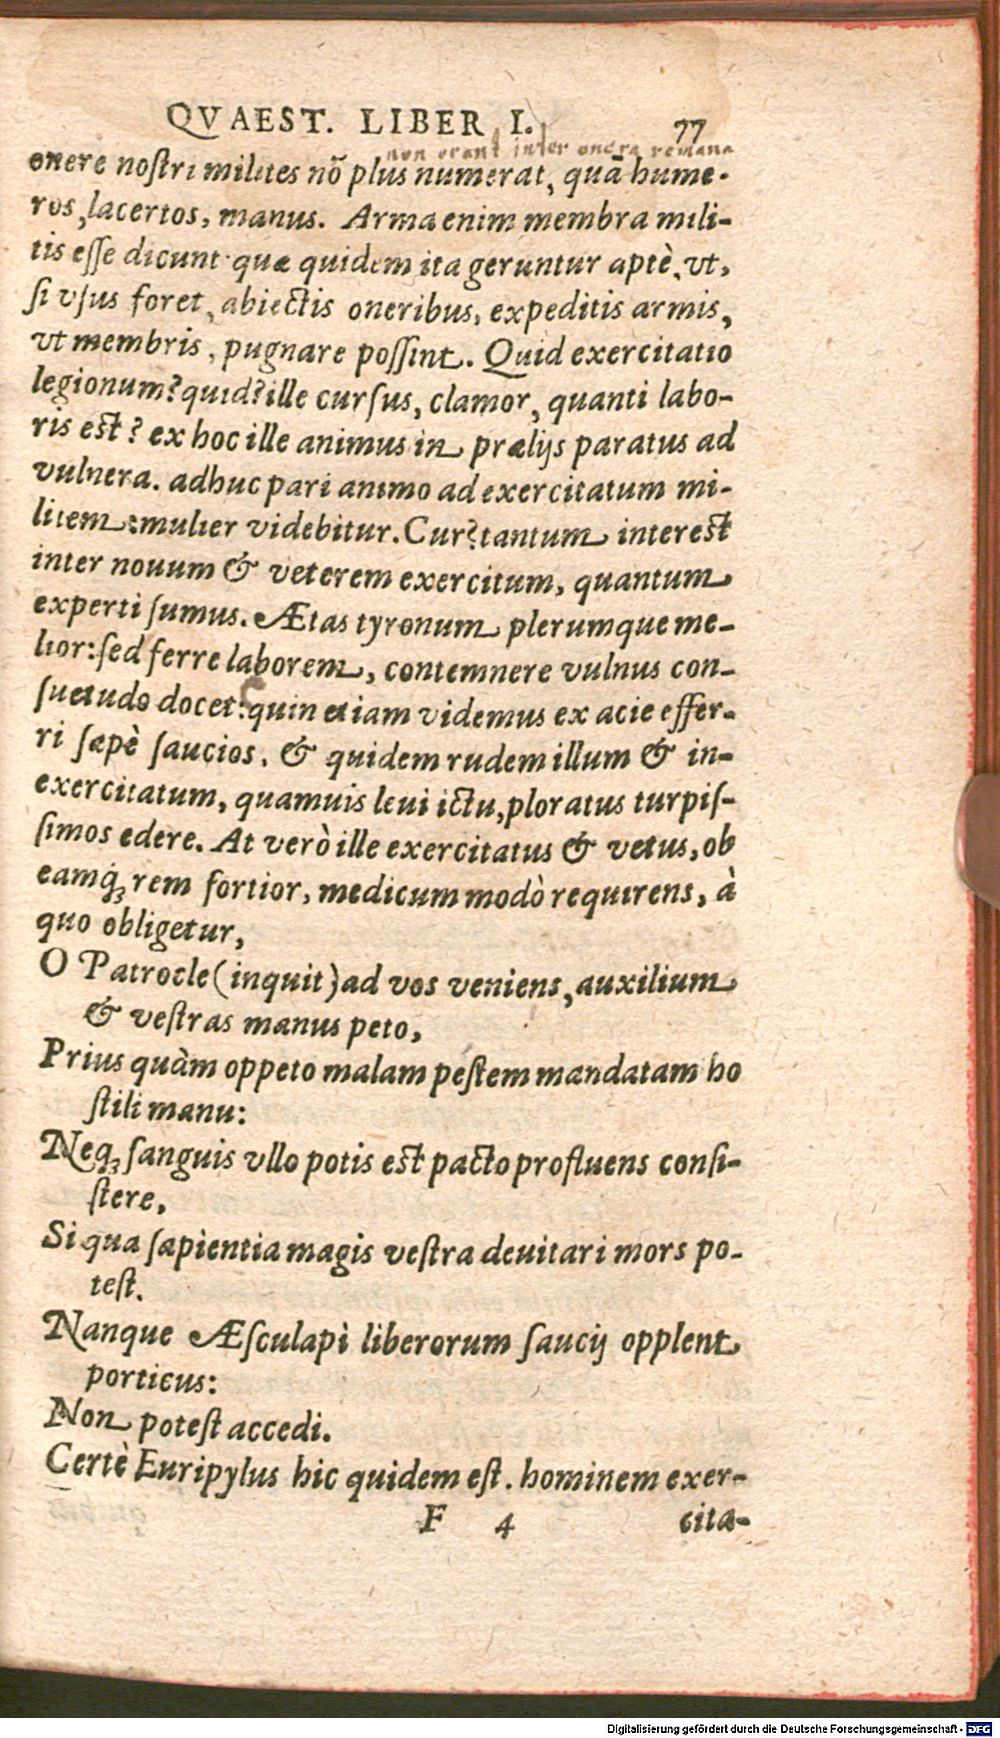 QVAEST. LIBER I. 77
non erant inter onera romana
onere noſtri milites nõ plus numerat, quã hume-
ros, lacertos, manus. Arma enim membra mili-
tis eſſe dicunt· quæ quidem ita geruntur aptè, vt,
ſi vſus foret, abiectis oneribus, expeditis armis,
vt membris, pugnare poſſint. Quid exercitatio
legionum? quid? ille curſus, clamor, quanti labo-
ris eſt? ex hoc ille animus in prælijs paratus ad
vulnera. adhuc pari animo ad exercitatum mi-
litem: mulier videbitur. Cur? tantum intereſt
inter nouum & veterem exercitum, quantum
experti ſumus. Ætas tyronum plerumque me-
lior: ſed ferre laborem, contemnere vulnus con-
ſuetudo docet: quin etiam videmus ex acie effer-
ri ſæpè ſaucios. & quidem rudem illum & in-
exercitatum, quamuis leui ictu, ploratus turpiſ-
ſimos edere. At verò ille exercitatus & vetus, ob
eamq́ꝫ rem fortior, medicum modò requirens, à
quo obligetur,
O Patrocle (inquit) ad vos veniens, auxilium
& veſtras manus peto,
Prius quàm oppeto malam peſtem mandatam ho
ſtili manu:
Neqꝫ ſanguis vllo potis eſt pacto profluens conſi-
ſtere,
Si qua ſapientia magis veſtra deuitari mors po-
teſt.
Nanque Æſculapì liberorum ſaucij opplent
porticus:
Non poteſt accedi.
Certè Euripylus hic quidem eſt. hominem exer-
F 4 cita-
Digitalisierung gefördert durch die Deutsche Forschungsgemeinschaft - DFG